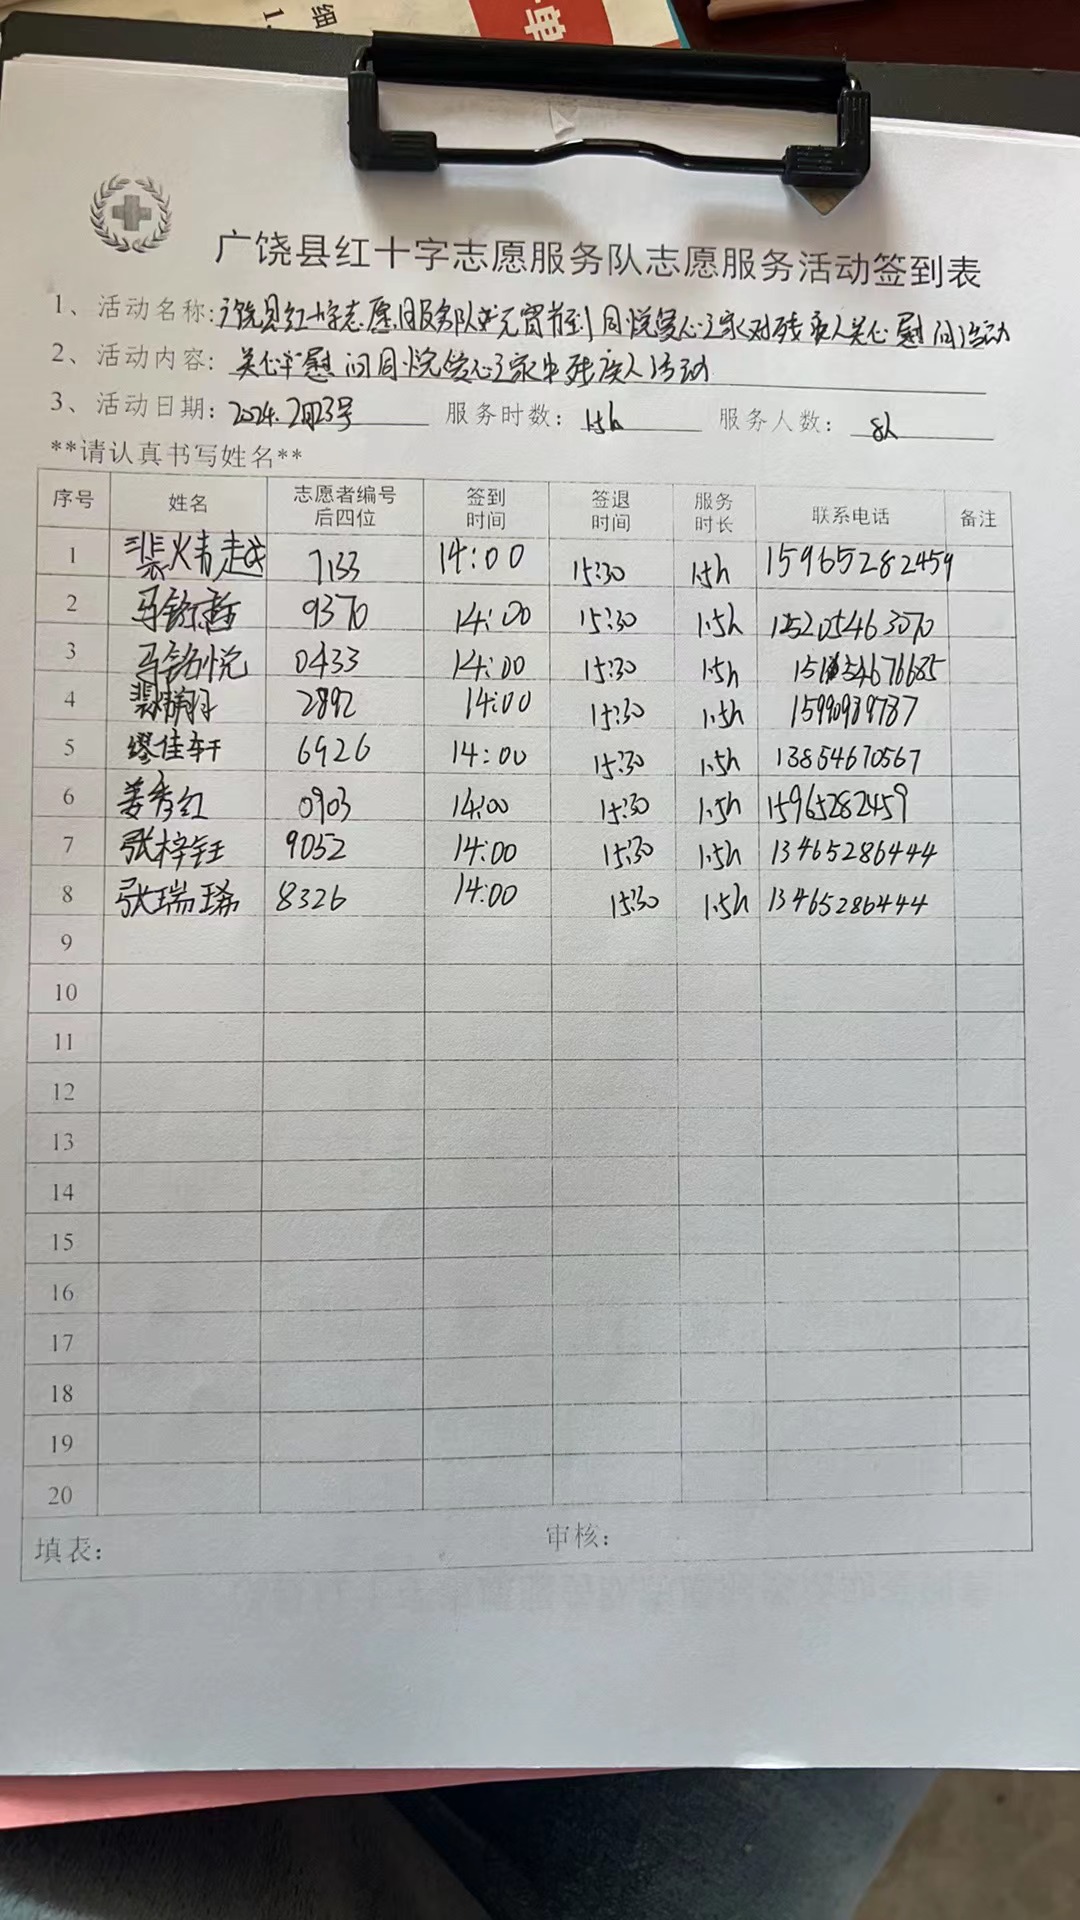 单
细
1.
广饶县红十字志愿服务队志愿服务活动签到表
1、活动名称:广饶县红十字志愿服务队迎元宵节到同悦爱心之家对残疾人关心慰问活动
2、活动内容: 关心慰问同悦爱心之家中残疾人活动
3、活动日期: 2024.2月23号 服务时数: 1.5h 服务人数: 8人
**请认真书写姓名**
序号 姓名 志愿者编号后四位 签到时间 签退时间 服务时长 联系电话 备注
1 7133 14:00 15:30 1.5h 15965282459
2 马铭哲 9370 14:00 15:30 1.5h 15205463070
3 马铭悦 0433 14:00 15:30 1.5h
4 2892 14:00 15:30 1.5h 15990939787
5 缪佳轩 6926 14:00 15:30 1.5h 13854670567
6 姜秀红 0903 14:00 15:30 1.5h 15965282459
7 张梓钰 9052 14:00 15:30 1.5h 13465286444
8 张瑞琋 8326 14:00 15:30 1.5h 13465286444
9
10
11
12
13
14
15
16
17
18
19
20
填表: 审核: